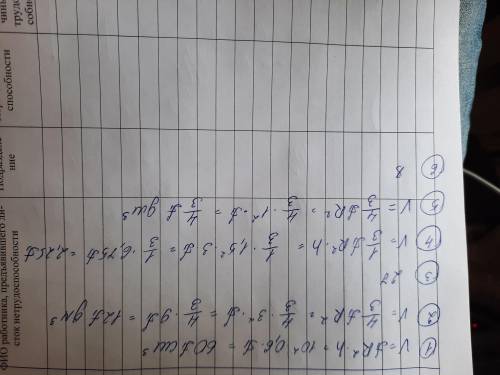 ФИО работника, предъявившего ли-
сток нетрудоспособности
ние
способности
① V = πR²h = 10² · 0,6 · π = 60π см³
② V = 4/3 πR² = 4/3 · 3² · π = 4/3 · 9π = 12π дм³
③ 27
④ V = 1/3 πR² · h = 1/3 · 1,5² · 3π = 1/3 · 6,75π = 2,25π
⑤ V = 4/3 πR² = 4/3 · 1² · π = 4/3 π дм³
⑥ 8